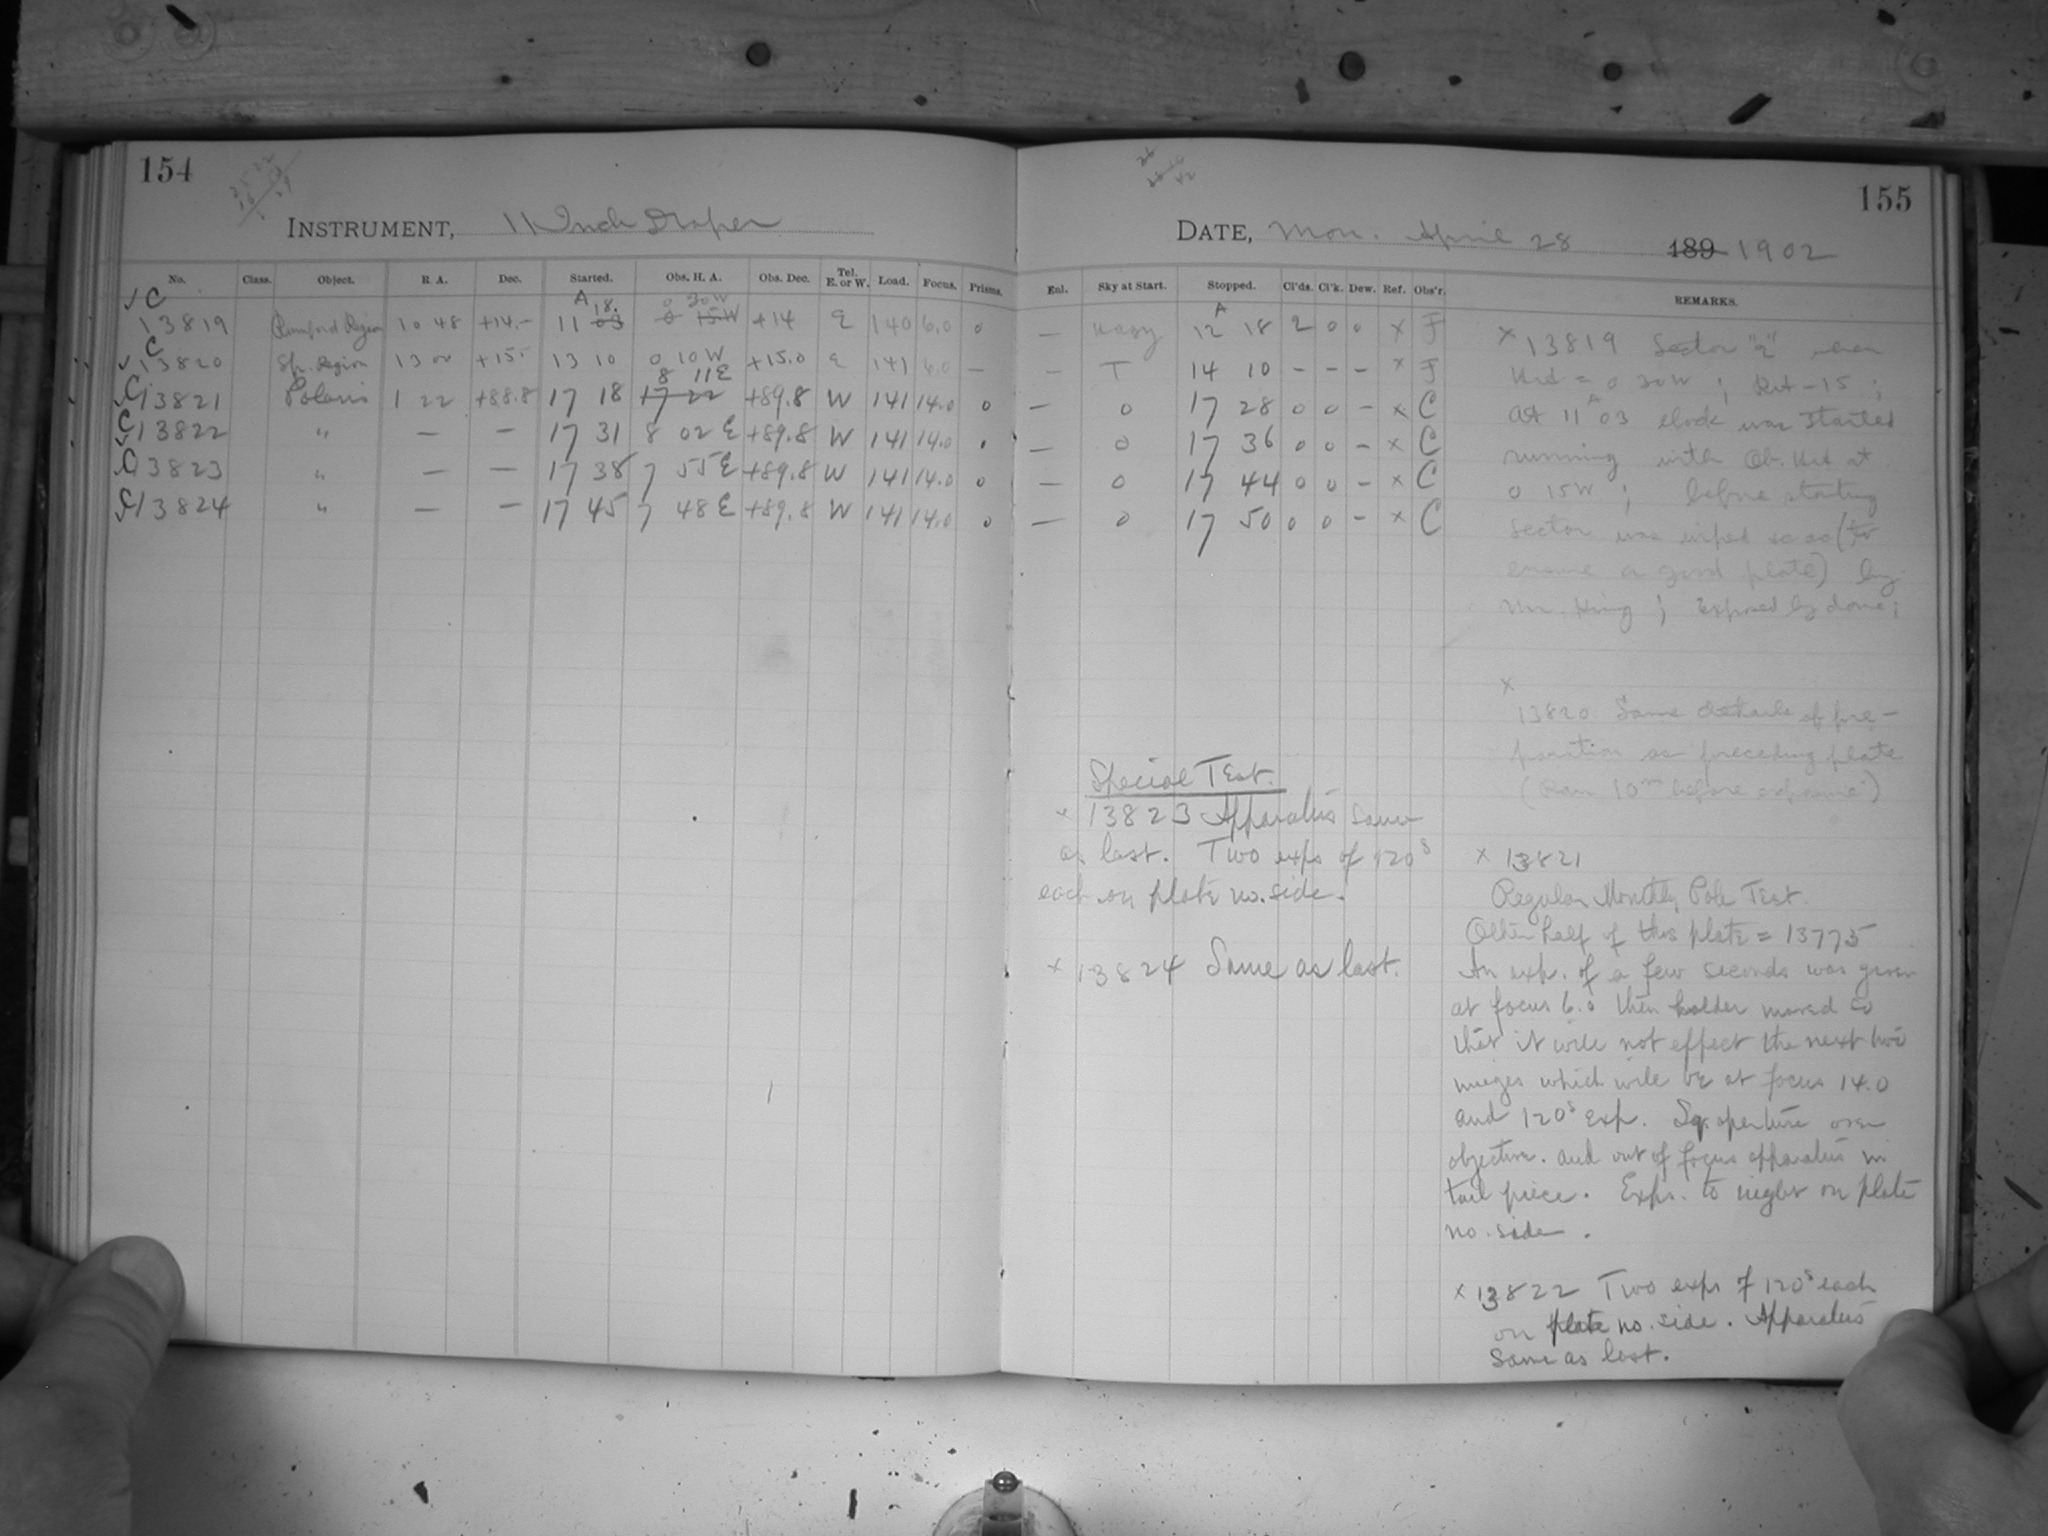 154
INSTRUMENT, 11 Inch Draper
No. Class. Object. R A. Dec. Started. Obs. H. A. Obs. Dec. Tel. E. or W. Load. Focus. Prisms.
C 13819 Rumford Region 10 48 +14.- A 11 03 18. 0 15W 0 30W +14 E 140 6.0 0
C 13820 Region 13 00 +15. 13 10 0 10W +15.0 E 141 6.0 —
C 13821 Polaris 1 22 +88.8 17 18 17 22 8 11E +89.8 W 141 14.0 0
C 13822 " — — 17 31 8 02 E +89.8 W 141 14.0
C 13823 " — — 17 38 7 55E +89.8 W 141 14.0 0
C 13824 " — — 17 45 7 48E +89.8 W 141 14.0 0
155
DATE, Mon. April 28 189 1902
Enl. Sky at Start. Stopped. Cl'ds. Cl'k. Dew. Ref. Obs'r. REMARKS.
— Hazy A 12 18 2 0 0 x F
— T 14 10 - - - x F
— 0 17 28 0 0 - x C
— 0 17 36 0 0 - x C
— 0 17 44 0 0 - x C
— 0 17 50 0 0 - x C
x 13819 Sector "2" when
= 0 30W ; -15 ;
at 11 A 03 clock was started
running with Ob. at
0 15W ; before starting
sector was wiped (to
ensure a good plate) by
Mr. King ; Exposed by dome ;
x
13820. Same details of pre-
paration as preceding plate
(Ran 10m before exposure)
x 13821
Regular Monthly Pole Test.
Other half of this plate = 13775
An exp. of a few seconds was given
at focus 6.0 then holder moved so
that it will not effect the next two
images which will be at focus 14.0
and 120s exp. Sq. aperture over
objective. and out of focus apparatus in
tail piece. Exps. to night on plate
no. side.
x 13822 Two exps of 120s each
on plate no. side. Apparatus
Same as last.
Special Test.
x 13823 Apparatus same
as last. Two exps of 120s
each on plate no. side.
x 13824 Same as last.